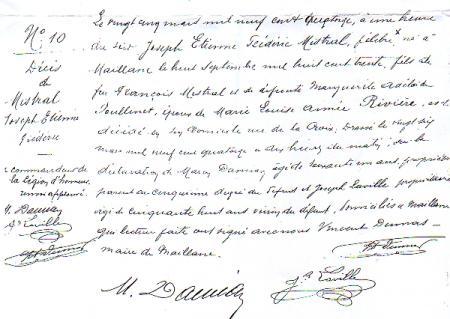 N° 10
Décès
de
Mistral
Joseph Etienne
Frédéric
commandeur de
la Légion d'honneur
M. Daumas
Jh Laville
Le vingt cinq mars mil neuf cent quatorze, à une heure
du soir Joseph Etienne Frédéric Mistral, félibre né à
Maillane le huit septembre mil huit cent trente, fils de
feu François Mistral et de défunte Marguerite Adélaïde
Poullinet, époux de Marie Louise Aimée Rivière, est
décédé en son domicile rue de la Croix, Dressé le vingt six
mars mil neuf cent quatorze à dix heures du matin, sur la
déclaration de agé de soixante ans, propriétaire
parent au cinquième degré du défunt et Joseph Laville propriétaire
agé de cinquante huit ans voisin du défunt, domiciliés à Maillane
qui lecture faite ont signé avec nous Vincent
maire de Maillane.
M.
Jh Laville